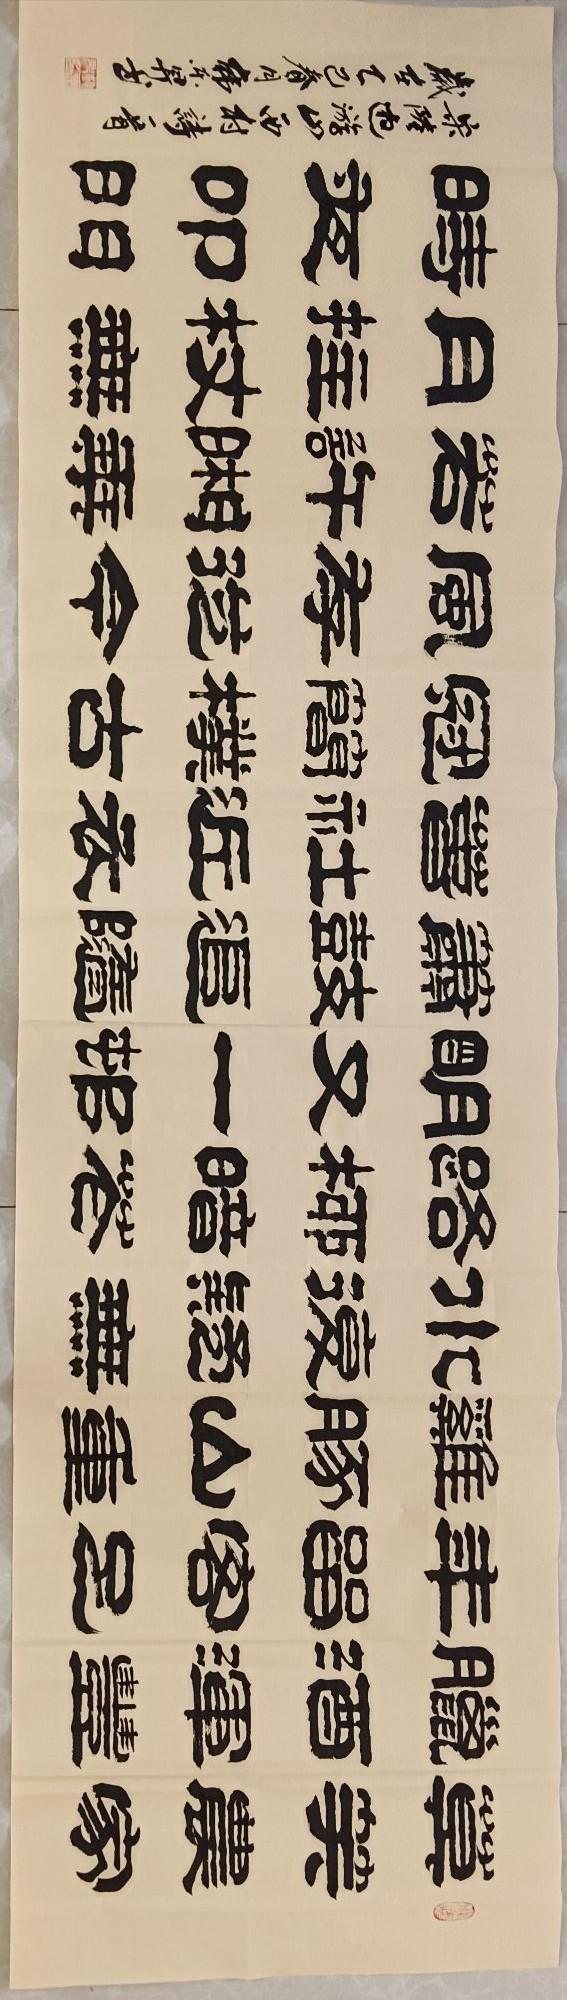 莫笑農家
臘酒渾豐
年留客足
雞豚山重
水復疑無
路柳暗花
明又一村
簫鼓追隨
春社近衣
冠簡樸古
風存從今
若許閒乘
月拄杖無
時夜叩門
宋陸遊游山西村詩一首
歲在乙巳春月書